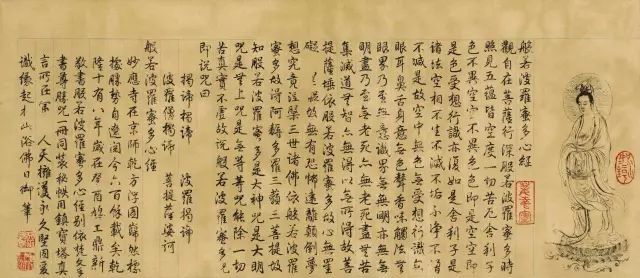 般若波羅蜜多心經
觀自在菩薩行深般若波羅蜜多時
照見五蘊皆空度一切苦厄舍利子
色不異空空不異色色即是空空即
是色受想行識亦復如是舍利子是
諸法空相不生不滅不垢不淨不增
不減是故空中無色無受想行識無
眼耳鼻舌身意無色聲香味觸法無
眼界乃至無意識界無無明亦無無
明盡乃至無老死亦無老死盡無苦
集滅道無智亦無得以無所得故菩
提薩埵依般若波羅蜜多故心無罣
礙無罣礙故無有恐怖遠離顛倒夢
想究竟涅槃三世諸佛依般若波羅
蜜多故得阿耨多羅三藐三菩提故
知般若波羅蜜多是大神咒是大明
咒是無上咒是無等等咒能除一切
苦真實不虛故說般若波羅蜜多咒
即說咒曰
揭諦揭諦 波羅揭諦
波羅僧揭諦 菩提薩婆訶
般若波羅蜜多心經
妙應寺在京師乾方浮圖巋然標
勝勢自遼閱今六百餘載矣乾
隆十有八年歲在癸酉鳩工鼎新
敬書般若波羅蜜多心經
書尊勝咒一冊同裝秘帙用鎮寶塔真
言所在 人天擁護永久
識緣起 浴佛日御筆